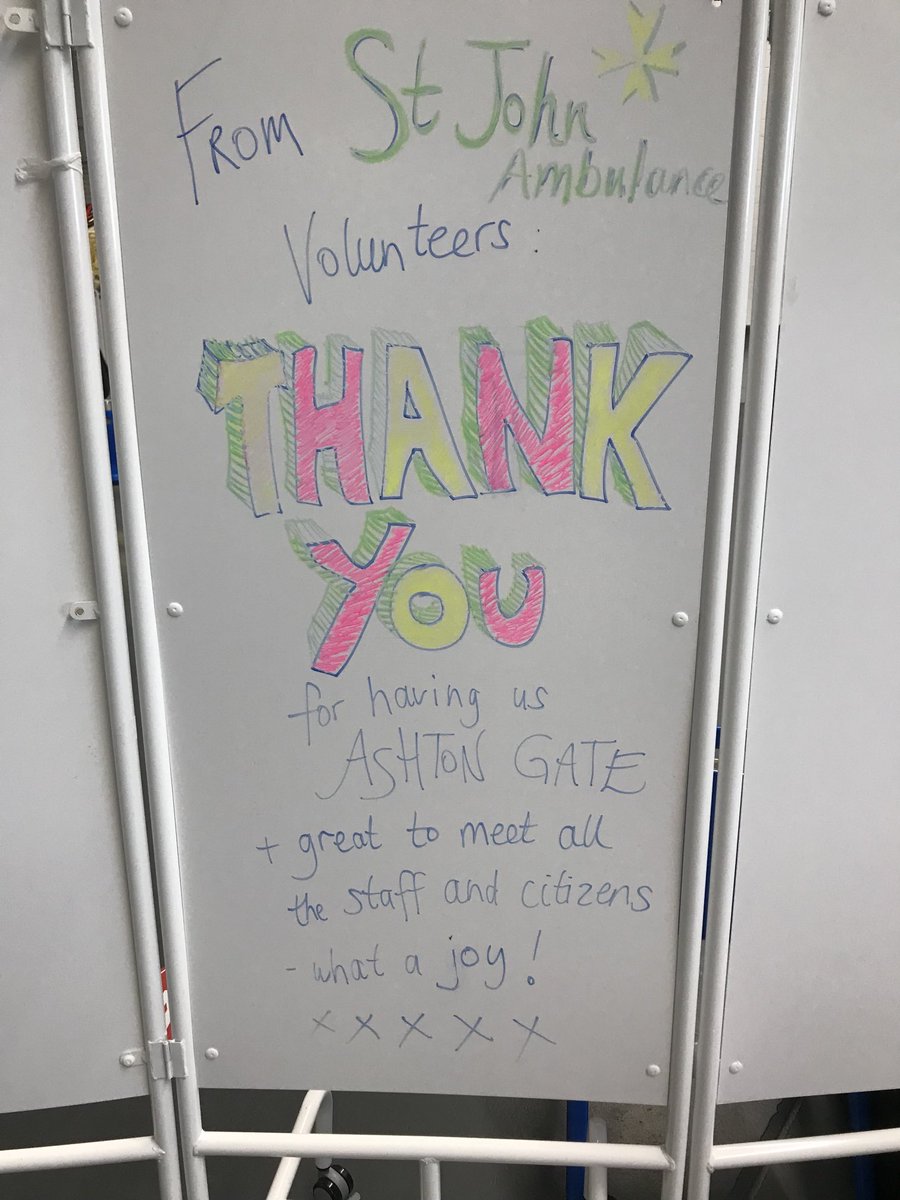 From St John
Ambulance
Volunteers:
THANK
YOU
for having us
ASHTON GATE
+ great to meet all
the staff and citizens
- what a joy!
x x x x x